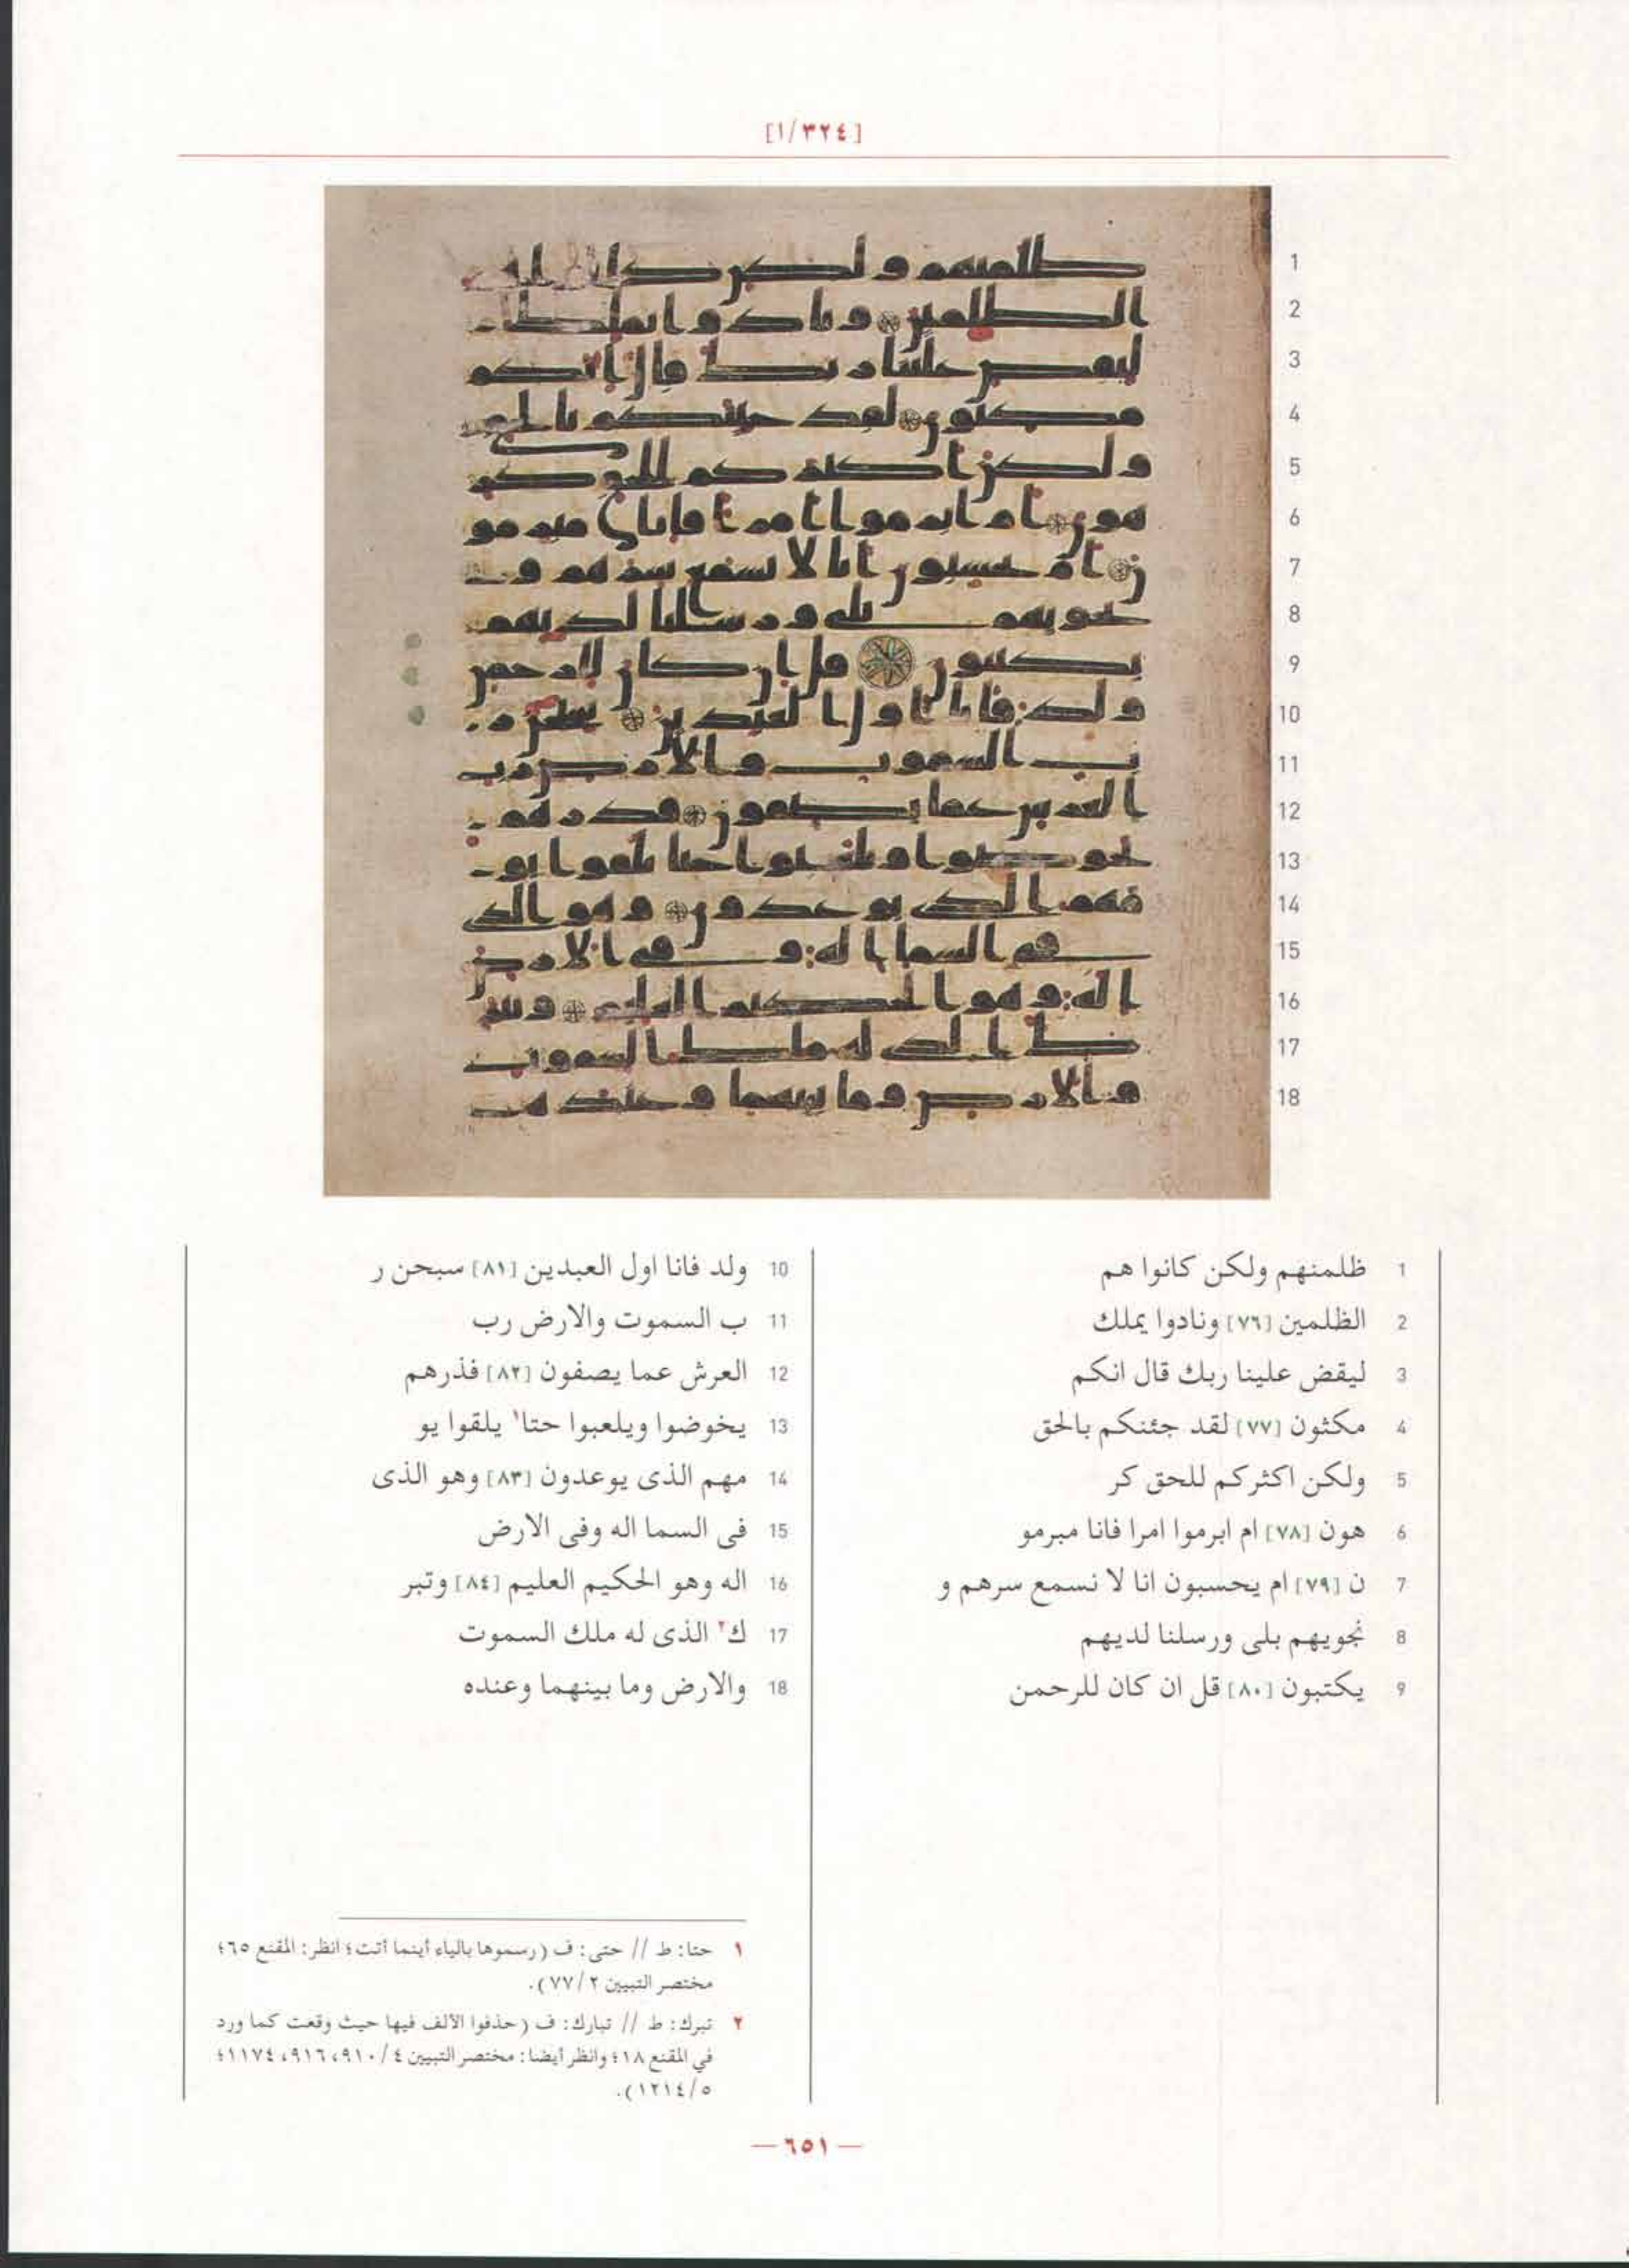 [١/٣٢٤]
1 ظلمنهم ولكن كانوا هم
2 الظلمين [٧٦] ونادوا يملك
3 ليقض علينا ربك قال انكم
4 مكثون [٧٧] لقد جئنكم بالحق
5 ولكن اكثركم للحق كر
6 هون [٧٨] ام ابرموا امرا فانا مبرمو
7 ن [٧٩] ام يحسبون انا لا نسمع سرهم و
8 نجويهم بلى ورسلنا لديهم
9 يكتبون [٨٠] قل ان كان للرحمن
10 ولد فانا اول العبدين [٨١] سبحن ر
11 ب السموت والارض رب
12 العرش عما يصفون [٨٢] فذرهم
13 يخوضوا ويلعبوا حتا١ يلقوا يو
14 مهم الذى يوعدون [٨٣] وهو الذى
15 فى السما اله وفى الارض
16 اله وهو الحكيم العليم [٨٤] وتبر
17 ك٢ الذى له ملك السموت
18 والارض وما بينهما وعنده
١ حتا: ط // حتى: ف (رسموها بالياء أينما أتت؛ انظر: المقنع ٦٥؛
مختصر التبيين ٢/ ٧٧).
٢ تبرك: ط // تبارك: ف (حذفوا الألف فيها حيث وقعت كما ورد
في المقنع ١٨؛ وانظر أيضا: مختصر التبيين ٤/ ٩١٠، ٩١٦، ١١٧٤؛
٥/ ١٢١٤).
— ٦٥١ —